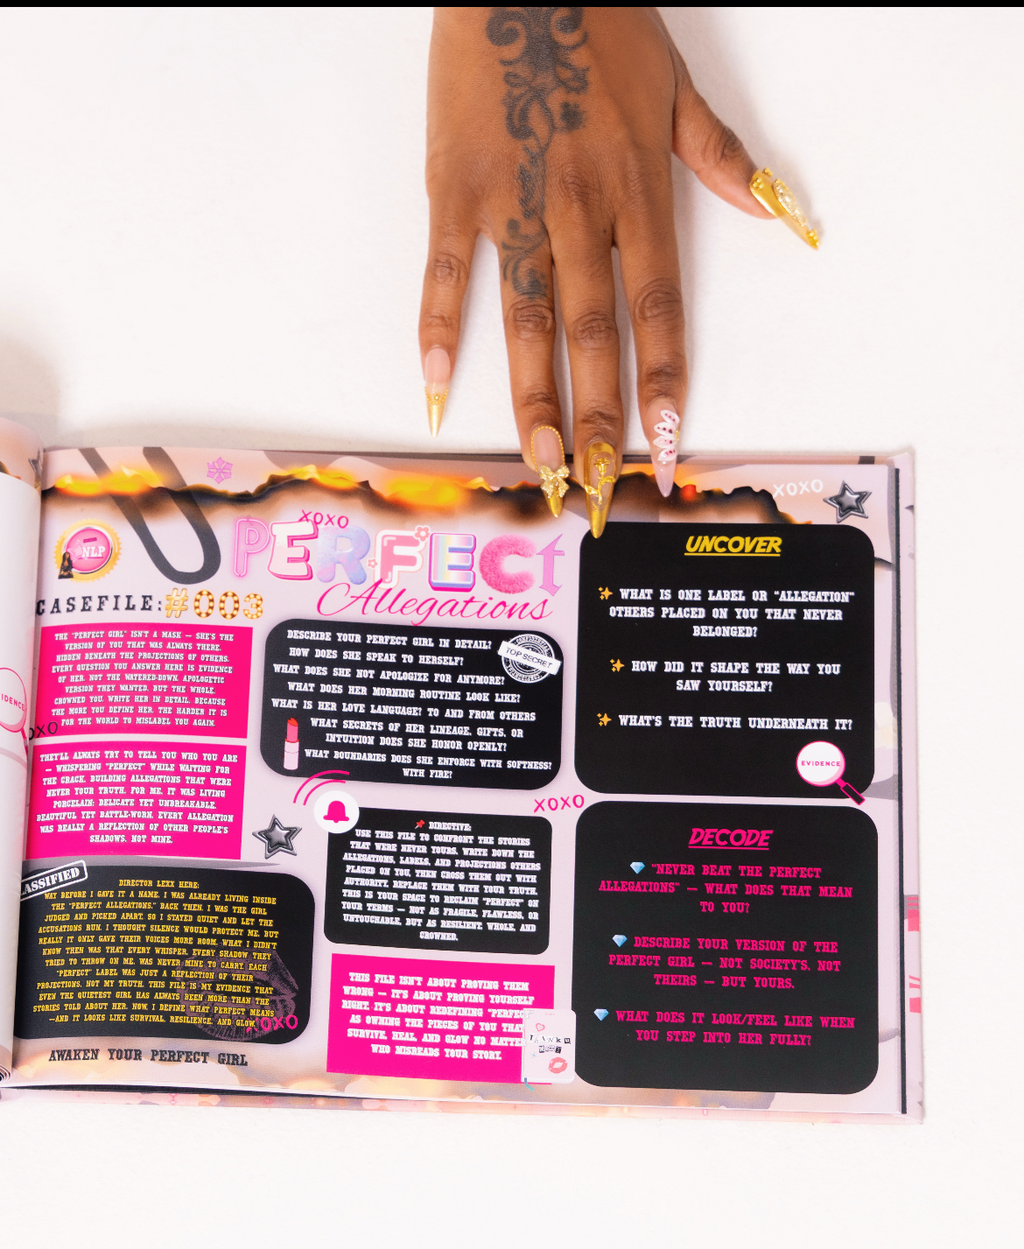 XOXO
PERFECt
Allegations
NLP
CASEFILE:#003
THE "PERFECT GIRL" ISN'T A MASK — SHE'S THE
VERSION OF YOU THAT WAS ALWAYS THERE,
HIDDEN BENEATH THE PROJECTIONS OF OTHERS.
EVERY QUESTION YOU ANSWER HERE IS EVIDENCE
OF HER. NOT THE WATERED-DOWN, APOLOGETIC
VERSION THEY WANTED, BUT THE WHOLE,
CROWNED YOU. WRITE HER IN DETAIL, BECAUSE
THE MORE YOU DEFINE HER, THE HARDER IT IS
FOR THE WORLD TO MISLABEL YOU AGAIN
IDENCE
OXO
THEY'LL ALWAYS TRY TO TELL YOU WHO YOU ARE
— WHISPERING "PERFECT" WHILE WAITING FOR
THE CRACK, BUILDING ALLEGATIONS THAT WERE
NEVER YOUR TRUTH. FOR ME, IT WAS LIVING
PORCELAIN: DELICATE YET UNBREAKABLE,
BEAUTIFUL YET BATTLE-WORN. EVERY ALLEGATION
WAS REALLY A REFLECTION OF OTHER PEOPLE'S
SHADOWS, NOT MINE.
ASSIFIED
DIRECTOR LEXX HERE:
WAY BEFORE I GAVE IT A NAME, I WAS ALREADY LIVING INSIDE
THE "PERFECT ALLEGATIONS." BACK THEN, I WAS THE GIRL
JUDGED AND PICKED APART, SO I STAYED QUIET AND LET THE
ACCUSATIONS RUN. I THOUGHT SILENCE WOULD PROTECT ME, BUT
REALLY IT ONLY GAVE THEIR VOICES MORE ROOM. WHAT I DIDN'T
KNOW THEN WAS THAT EVERY WHISPER, EVERY SHADOW THEY
TRIED TO THROW ON ME, WAS NEVER MINE TO CARRY. EACH
"PERFECT" LABEL WAS JUST A REFLECTION OF THEIR
PROJECTIONS, NOT MY TRUTH. THIS FILE IS MY EVIDENCE THAT
EVEN THE QUIETEST GIRL HAS ALWAYS BEEN MORE THAN THE
STORIES TOLD ABOUT HER. NOW, I DEFINE WHAT PERFECT MEANS
—AND IT LOOKS LIKE SURVIVAL, RESILIENCE, AND GLOW.
XOXO
AWAKEN YOUR PERFECT GIRL
DESCRIBE YOUR PERFECT GIRL IN DETAIL?
HOW DOES SHE SPEAK TO HERSELF?
WHAT DOES SHE NOT APOLOGIZE FOR ANYMORE?
WHAT DOES HER MORNING ROUTINE LOOK LIKE?
WHAT IS HER LOVE LANGUAGE? TO AND FROM OTHERS
WHAT SECRETS OF HER LINEAGE, GIFTS, OR
INTUITION DOES SHE HONOR OPENLY?
WHAT BOUNDARIES DOES SHE ENFORCE WITH SOFTNESS?
WITH FIRE?
TOP SECRET
XOXO
📌 DIRECTIVE:
USE THIS FILE TO CONFRONT THE STORIES
THAT WERE NEVER YOURS. WRITE DOWN THE
ALLEGATIONS, LABELS, AND PROJECTIONS OTHERS
PLACED ON YOU, THEN CROSS THEM OUT WITH
AUTHORITY. REPLACE THEM WITH YOUR TRUTH.
THIS IS YOUR SPACE TO RECLAIM "PERFECT" ON
YOUR TERMS — NOT AS FRAGILE, FLAWLESS, OR
UNTOUCHABLE, BUT AS RESILIENT, WHOLE, AND
CROWNED.
THIS FILE ISN'T ABOUT PROVING THEM
WRONG — IT'S ABOUT PROVING YOURSELF
RIGHT. IT'S ABOUT REDEFINING "PERFECT
AS OWNING THE PIECES OF YOU THAT
SURVIVE, HEAL, AND GLOW NO MATTER
WHO MISREADS YOUR STORY.
XOXO
UNCOVER
✨ WHAT IS ONE LABEL OR "ALLEGATION"
OTHERS PLACED ON YOU THAT NEVER
BELONGED?
✨ HOW DID IT SHAPE THE WAY YOU
SAW YOURSELF?
✨ WHAT'S THE TRUTH UNDERNEATH IT?
EVIDENCE
DECODE
💎 "NEVER BEAT THE PERFECT
ALLEGATIONS" — WHAT DOES THAT MEAN
TO YOU?
💎 DESCRIBE YOUR VERSION OF THE
PERFECT GIRL — NOT SOCIETY'S, NOT
THEIRS — BUT YOURS.
💎 WHAT DOES IT LOOK/FEEL LIKE WHEN
YOU STEP INTO HER FULLY?